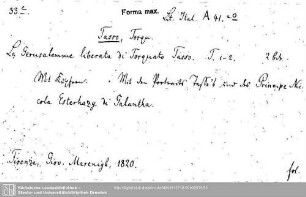 33 c
Forma max.
Lt. Ital. A 41. 20
Tasso, Torqu.
La Gerusalemme liberata di Torquato Tasso. T. 1-2. 2 Bde.
Mit Kupfern. Mit den Portraits und des Principe Ni-
cola Esterhazy di Galantha.
Firenze, Giov. Marenigh, 1820. fol.
Sächsische Landesbibliothek -
Staats- und Universitätsbibliothek Dresden